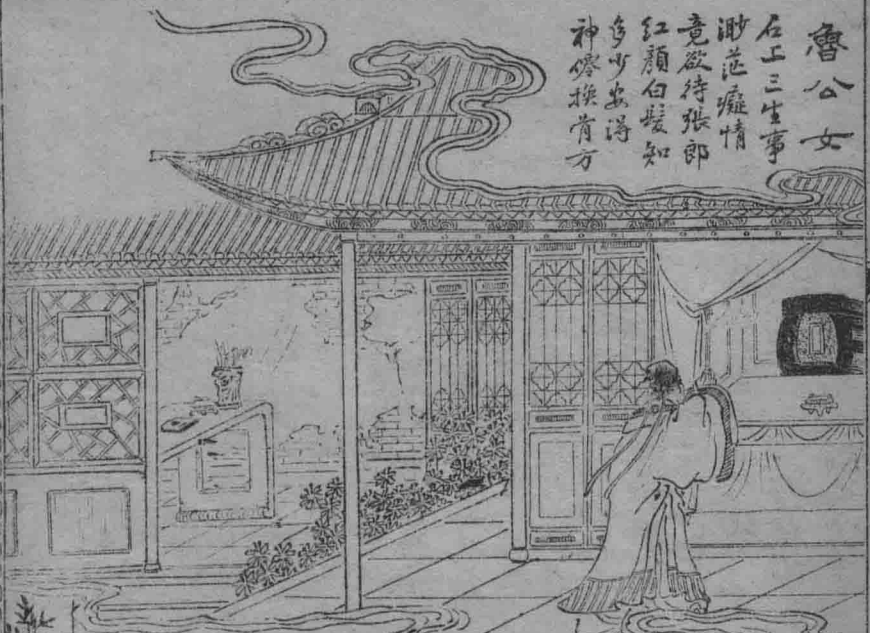 魯公女
石上三生事
渺茫癡情
竟欲待張郎
紅顏白髮知
多少安得
神僊換骨方